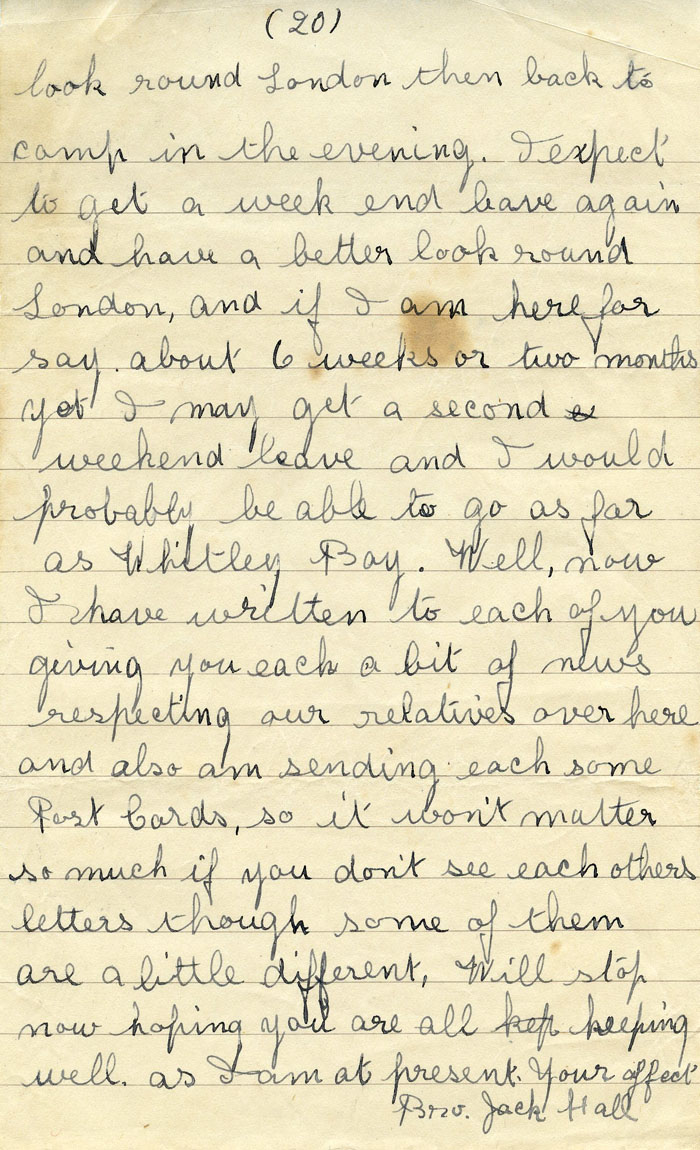 (20)
look round London then back to
camp in the evening. I expect
to get a week end leave again
and have a better look round
London, and if I am here for
say. about 6 weeks or two months
yet I may get a second a
weekend leave and I would
probably be able to go as far
as Whitley Bay. Well, now
I have written to each of you
giving you each a bit of news
respecting our relatives over here
and also am sending each some
Post Cards, so it won't matter
so much if you don't see each others
letters though some of them
are a little different, Will stop
now hoping you are all kept keeping
well. as I am at present. Your affect
Bro. Jack Hall